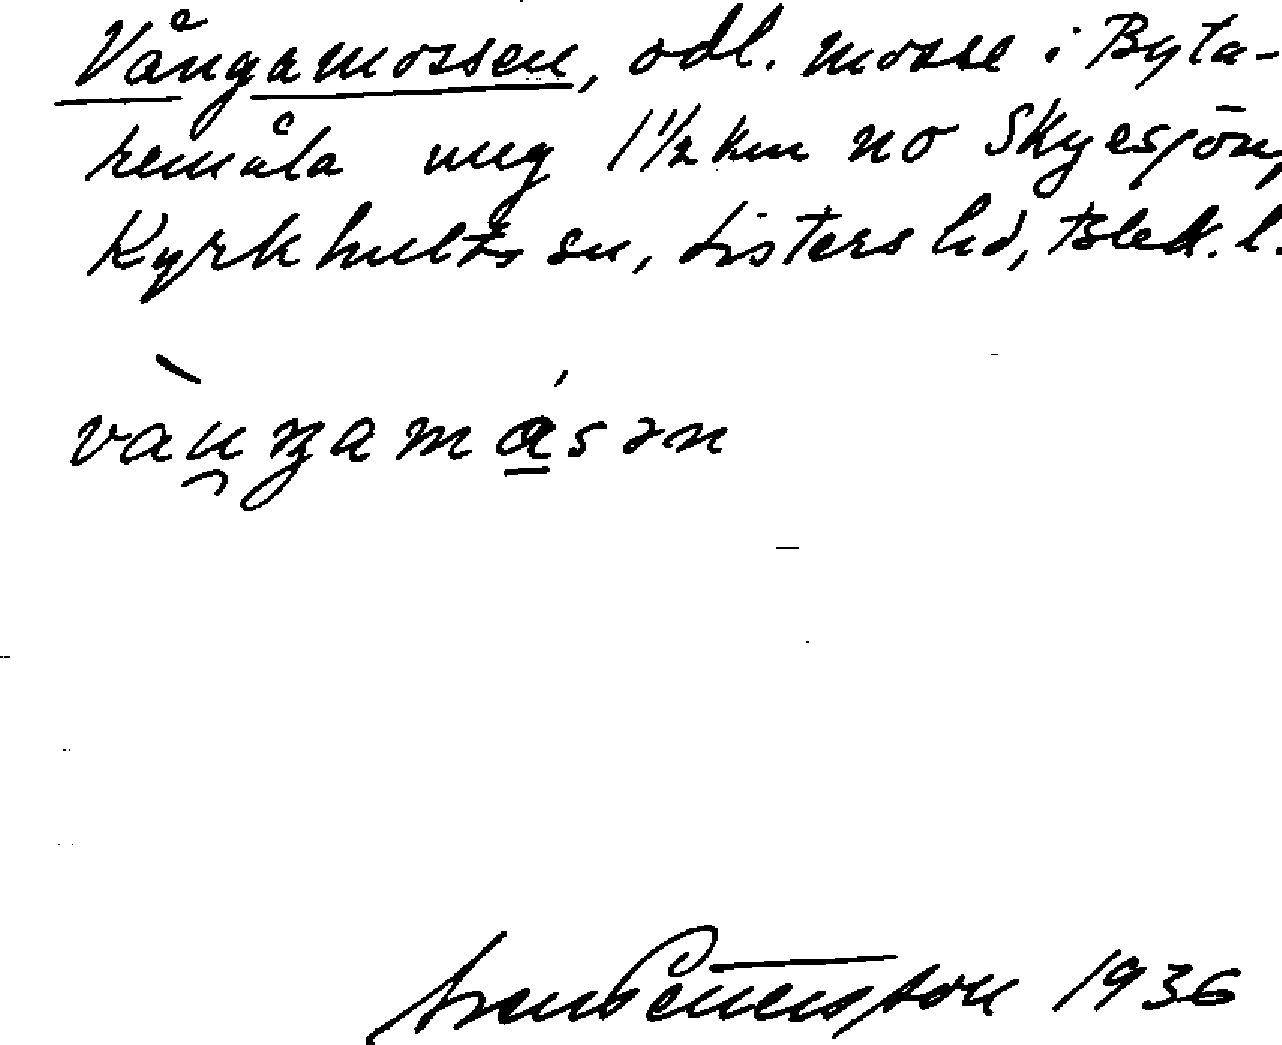 Vångamossen, odl. mosse i Byta-
remåla ung 1½ km no Skyesjön,
Kyrkhults sn, Listers hd, Blek. l.
1936